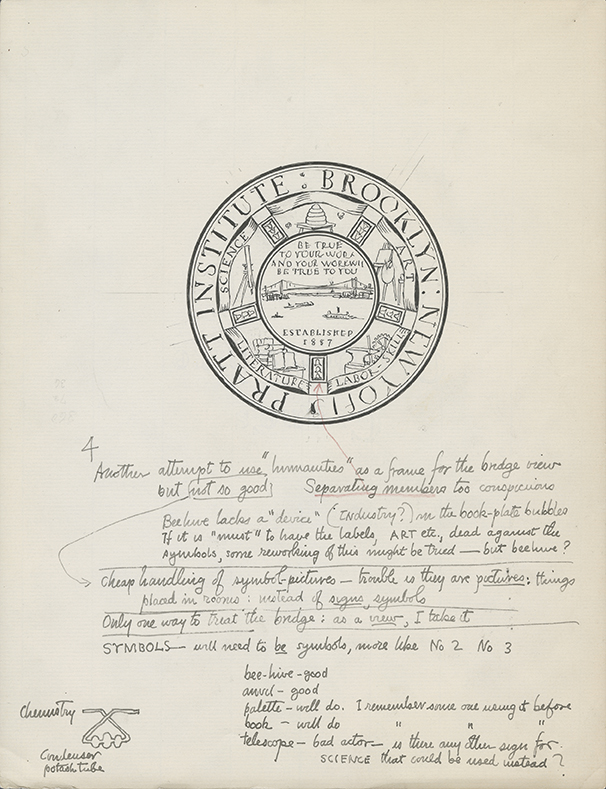 PRATT INSTITUTE : BROOKLYN : NEW YORK
SCIENCE
ART
LITERATURE
LABOR-SKILL
BE TRUE
TO YOUR WORK
AND YOUR WORK WILL
BE TRUE TO YOU
ESTABLISHED
1887
4
Another attempt to use "humanities" as a frame for the bridge view
but not so good Separating members too conspicuous
Beehive lacks a "device" (INDUSTRY?) in the book-plate bubbles
If it is "must" to have the labels, ART etc., dead against the
symbols, some reworking of this might be tried — but beehive?
Cheap handling of symbol-pictures — trouble is they are pictures: things
placed in rooms: instead of signs, symbols
Only one way to treat the bridge: as a view, I take it
SYMBOLS — will need to be symbols, more like No 2 No 3
bee-hive - good
anvil - good
palette - will do. I remember some one using it before
book - will do " " "
telescope - bad actor - is there any other sign for
SCIENCE that could be used instead?
Chemistry
Condenser
potash tube